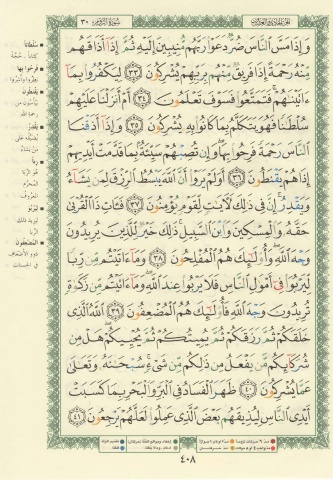 سورة الروم ٣٠
وَإِذَا مَسَّ ٱلنَّاسَ ضُرٌّ دَعَوْا۟ رَبَّهُم مُّنِيبِينَ إِلَيْهِ ثُمَّ إِذَآ أَذَاقَهُم
مِّنْهُ رَحْمَةً إِذَا فَرِيقٌ مِّنْهُم بِرَبِّهِمْ يُشْرِكُونَ ٣٣ لِيَكْفُرُوا۟ بِمَآ
ءَاتَيْنَٰهُمْ فَتَمَتَّعُوا۟ فَسَوْفَ تَعْلَمُونَ ٣٤ أَمْ أَنزَلْنَا عَلَيْهِمْ
سُلْطَٰنًا فَهُوَ يَتَكَلَّمُ بِمَا كَانُوا۟ بِهِۦ يُشْرِكُونَ ٣٥ وَإِذَآ أَذَقْنَا
ٱلنَّاسَ رَحْمَةً فَرِحُوا۟ بِهَا وَإِن تُصِبْهُمْ سَيِّئَةٌۢ بِمَا قَدَّمَتْ أَيْدِيهِمْ
إِذَا هُمْ يَقْنَطُونَ ٣٦ أَوَلَمْ يَرَوْا۟ أَنَّ ٱللَّهَ يَبْسُطُ ٱلرِّزْقَ لِمَن يَشَآءُ
وَيَقْدِرُ إِنَّ فِى ذَٰلِكَ لَءَايَٰتٍ لِّقَوْمٍ يُؤْمِنُونَ ٣٧ فَـَٔاتِ ذَا ٱلْقُرْبَىٰ
حَقَّهُۥ وَٱلْمِسْكِينَ وَٱبْنَ ٱلسَّبِيلِ ذَٰلِكَ خَيْرٌ لِّلَّذِينَ يُرِيدُونَ
وَجْهَ ٱللَّهِ وَأُو۟لَٰٓئِكَ هُمُ ٱلْمُفْلِحُونَ ٣٨ وَمَآ ءَاتَيْتُم مِّن رِّبًا
لِّيَرْبُوَا۟ فِىٓ أَمْوَٰلِ ٱلنَّاسِ فَلَا يَرْبُوا۟ عِندَ ٱللَّهِ وَمَآ ءَاتَيْتُم مِّن زَكَوٰةٍ
تُرِيدُونَ وَجْهَ ٱللَّهِ فَأُو۟لَٰٓئِكَ هُمُ ٱلْمُضْعِفُونَ ٣٩ ٱللَّهُ ٱلَّذِى
خَلَقَكُمْ ثُمَّ رَزَقَكُمْ ثُمَّ يُمِيتُكُمْ ثُمَّ يُحْيِيكُمْ هَلْ مِن
شُرَكَآئِكُم مَّن يَفْعَلُ مِن ذَٰلِكُم مِّن شَىْءٍ سُبْحَٰنَهُۥ وَتَعَٰلَىٰ
عَمَّا يُشْرِكُونَ ٤٠ ظَهَرَ ٱلْفَسَادُ فِى ٱلْبَرِّ وَٱلْبَحْرِ بِمَا كَسَبَتْ
أَيْدِى ٱلنَّاسِ لِيُذِيقَهُم بَعْضَ ٱلَّذِى عَمِلُوا۟ لَعَلَّهُمْ يَرْجِعُونَ ٤١
سلطانا
فرحوا بها
يقنطون
يقدر
ربا
ليربو
المضعفون
٤٠٨